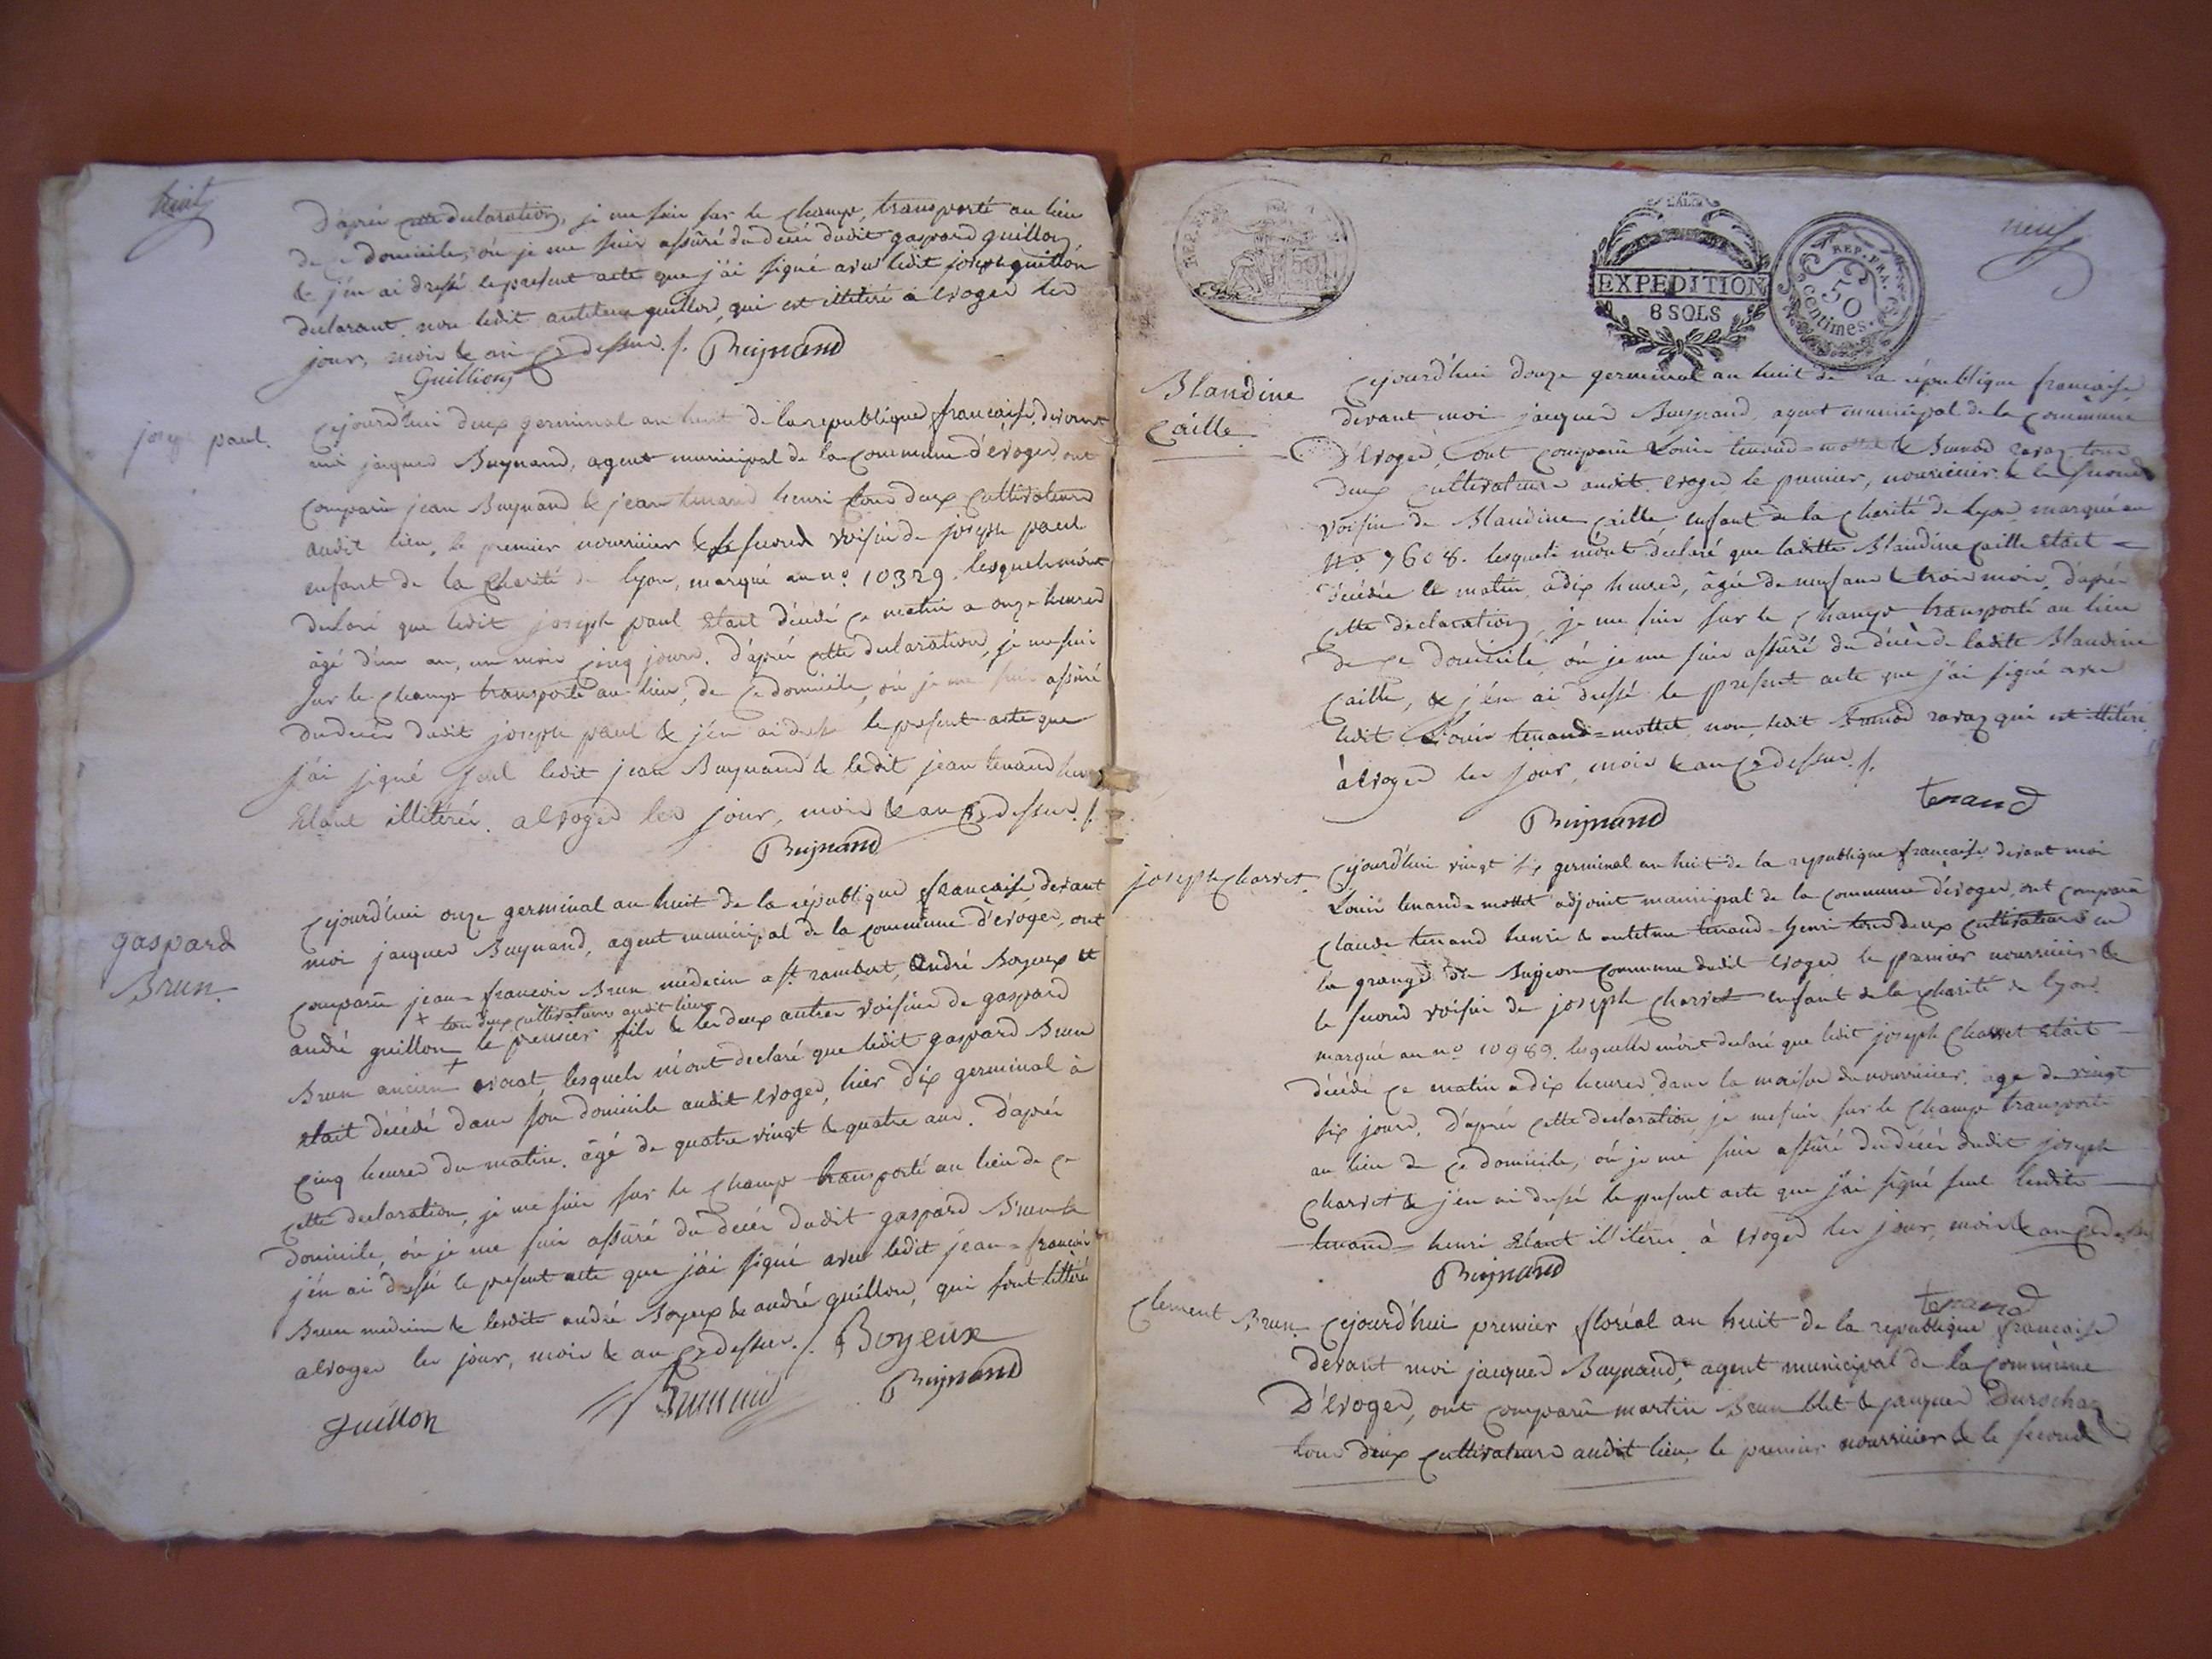 huit
D'après cette declaration, je me suis sur le champ, transporté au lieu
de ce domicile, où je me suis assûré du décès dudit gaspard guillon
& j'en ai dressé le present acte que j'ai signé avec ledit joseph guillon
declarant, non ledit antelme guillon, qui est illitéré à evoges les
jour, mois & an cy dessus ./. Buynand
Guillion
joseph paul.
Cejourd'hui deux germinal an huit de la republique française, devant
moi jacques Buynand, agent municipal de la commune d'évoges, ont
comparû jean Buynand & jean tenand henri tous deux cultivateurs
audit lieu, le premier nourricier & le second voisin de joseph paul
enfant de la charité de lyon, marqué au no. 10329. lesquels m'ont
declaré que ledit joseph paul était décédé ce matin a onze heures
âgé d'un an, un mois cinq jours. d'après cette declaration, je me suis
sur le champ transporté au lieu, de ce domicile, où je me suis assûré
du décès dudit joseph paul & j'en ai dressé le present acte que
j'ai signé seul ledit jean Buynand & ledit jean tenand henri
étant illitérés. a evoges les jour, mois & an cy dessus ./.
Buynand
gaspard
Brun.
Cejourd'hui onze germinal an huit de la république française devant
moi jacques Buynand, agent municipal de la commune d'évoges, ont
comparû jean-françois Brun médecin a st. rambert, andré Boyeux et
+ tous deux cultivateurs audit lieu
andré guillon + le premier fils & les deux autres voisins de gaspard
Brun ancien avocat, lesquels m'ont declaré que ledit gaspard Brun
était décédé dans son domicile audit evoges, hier dix germinal à
cinq heures du matin. âgé de quatre vingt & quatre ans. D'après
cette declaration, je me suis sur le champ transporté au lieu de ce
domicile, où je me suis assûré du décès dudit gaspard Brun &
j'en ai dressé le present acte que j'ai signé avec ledit jean-françois
Brun médecin & lesdits andré Boyeux & andré guillon, qui sont littérés
a evoges les jour, mois & an cy dessus ./. Boyeux
Guillon Buynand
neuf
REP. FRA.
EXPEDITION
8 SOLS
REP. FRA.
50
centimes.
Blandine
Caille
Cejourd'hui douze germinal an huit de la république française
devant moi jacques Buynand, agent municipal de la commune
D'évoges, ont comparû Louis tenand=mottet & ravaz tous
deux cultivateurs audit evoges le premier, nourricier & le second
voisin de Blandine Caille enfant de la Charité de lyon marqué au
No. 7608. lesquels m'ont declaré que ladite Blandine Caille était
décédée ce matin, à dix heures, âgée de neuf ans & trois mois. d'après
cette déclaration, je me suis sur le champ transporté au lieu
de ce domicile, où je me suis assûré du décès de ladite Blandine
Caille, & j'en ai dressé le present acte que j'ai signé avec
ledit Louis tenand=mottet, non, ledit ravaz qui est illitéré.
à evoges les jour, mois & an cy dessus ./.
Buynand tenand
joseph Charvet.
Cejourd'hui vingt six germinal an huit de la republique française devant moi
Louis tenand=mottet adjoint municipal de la commune d'évoges, ont comparû
Claude tenand henri & antelme tenand=henri tous deux cultivateurs en
la grange de commune dudit evoges le premier nourricier &
le second voisin de joseph Charvet enfant de la charité de lyon
marqué au no. 10989. lesquels m'ont declaré que ledit joseph Charvet était
décédé ce matin a dix heures dans la maison du nourricier. âgé de vingt
six jours. D'après cette declaration, je me suis sur le champ transporté
au lieu de ce domicile, où je me suis assûré du décès dudit joseph
Charvet & j'en ai dressé le present acte que j'ai signé seul lesdits
tenand=henri étant illitérés. à evoges les jour, mois & an cy dessus
Buynand tenand
Clement Brun.
Cejourd'hui premier floréal an huit de la republique française
devant moi jacques Buynand, agent municipal de la commune
D'évoges, ont comparû martin Brun blet & jacques Durochat
tous deux cultivateurs audit lieu, le premier nourricier & le second